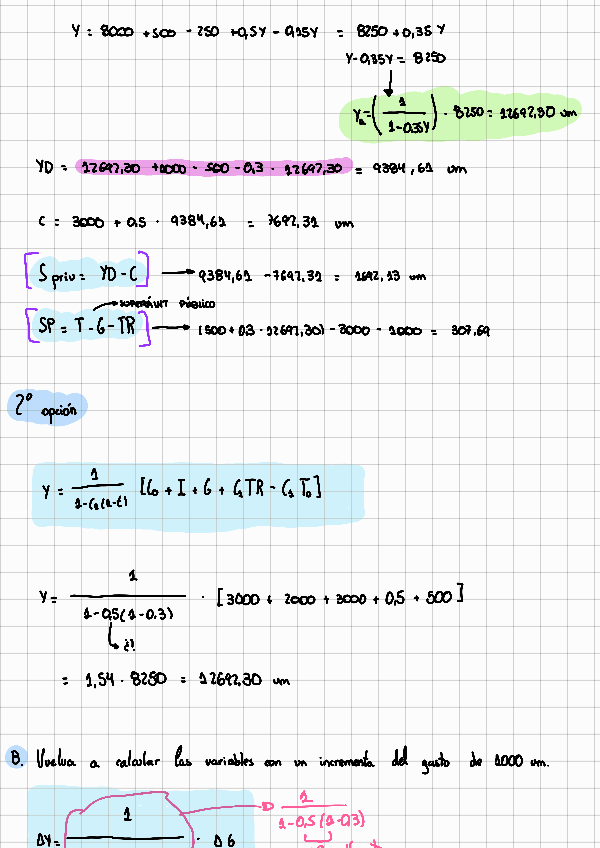 Y = 8000 + 500 - 250 + 0,5Y - 0,15Y = 8250 + 0,35 Y
Y - 0,35Y = 8250
Ya = (1 / 1-0,35Y) · 8250 = 12692,30 um
YD = 12692,30 + 1000 - 500 - 0,3 · 12692,30 = 9384,61 um
C = 3000 + 0,5 · 9384,61 = 7692,31 um
[S priv = YD - C] → 9384,61 - 7692,31 = 1692,13 um
SUPERÁVIT PÚBLICO
[SP = T - G - TR] → (500 + 0,3 · 12692,30) - 3000 - 1000 = 307,69
2º opción
Y = 1 / 1-C₁(1-t) [C₀ + I + G + C₁TR - C₁T₀]
Y = 1 / 1-0,5(1-0,3) · [3000 + 2000 + 3000 + 0,5 + 500]
¿?
= 1,54 · 8250 = 12692,30 um
B. Vuelva a calcular las variables con un incremento del gasto de 1000 um.
1 / 1-0,5(1-0,3)
ΔY = 1 · ΔG